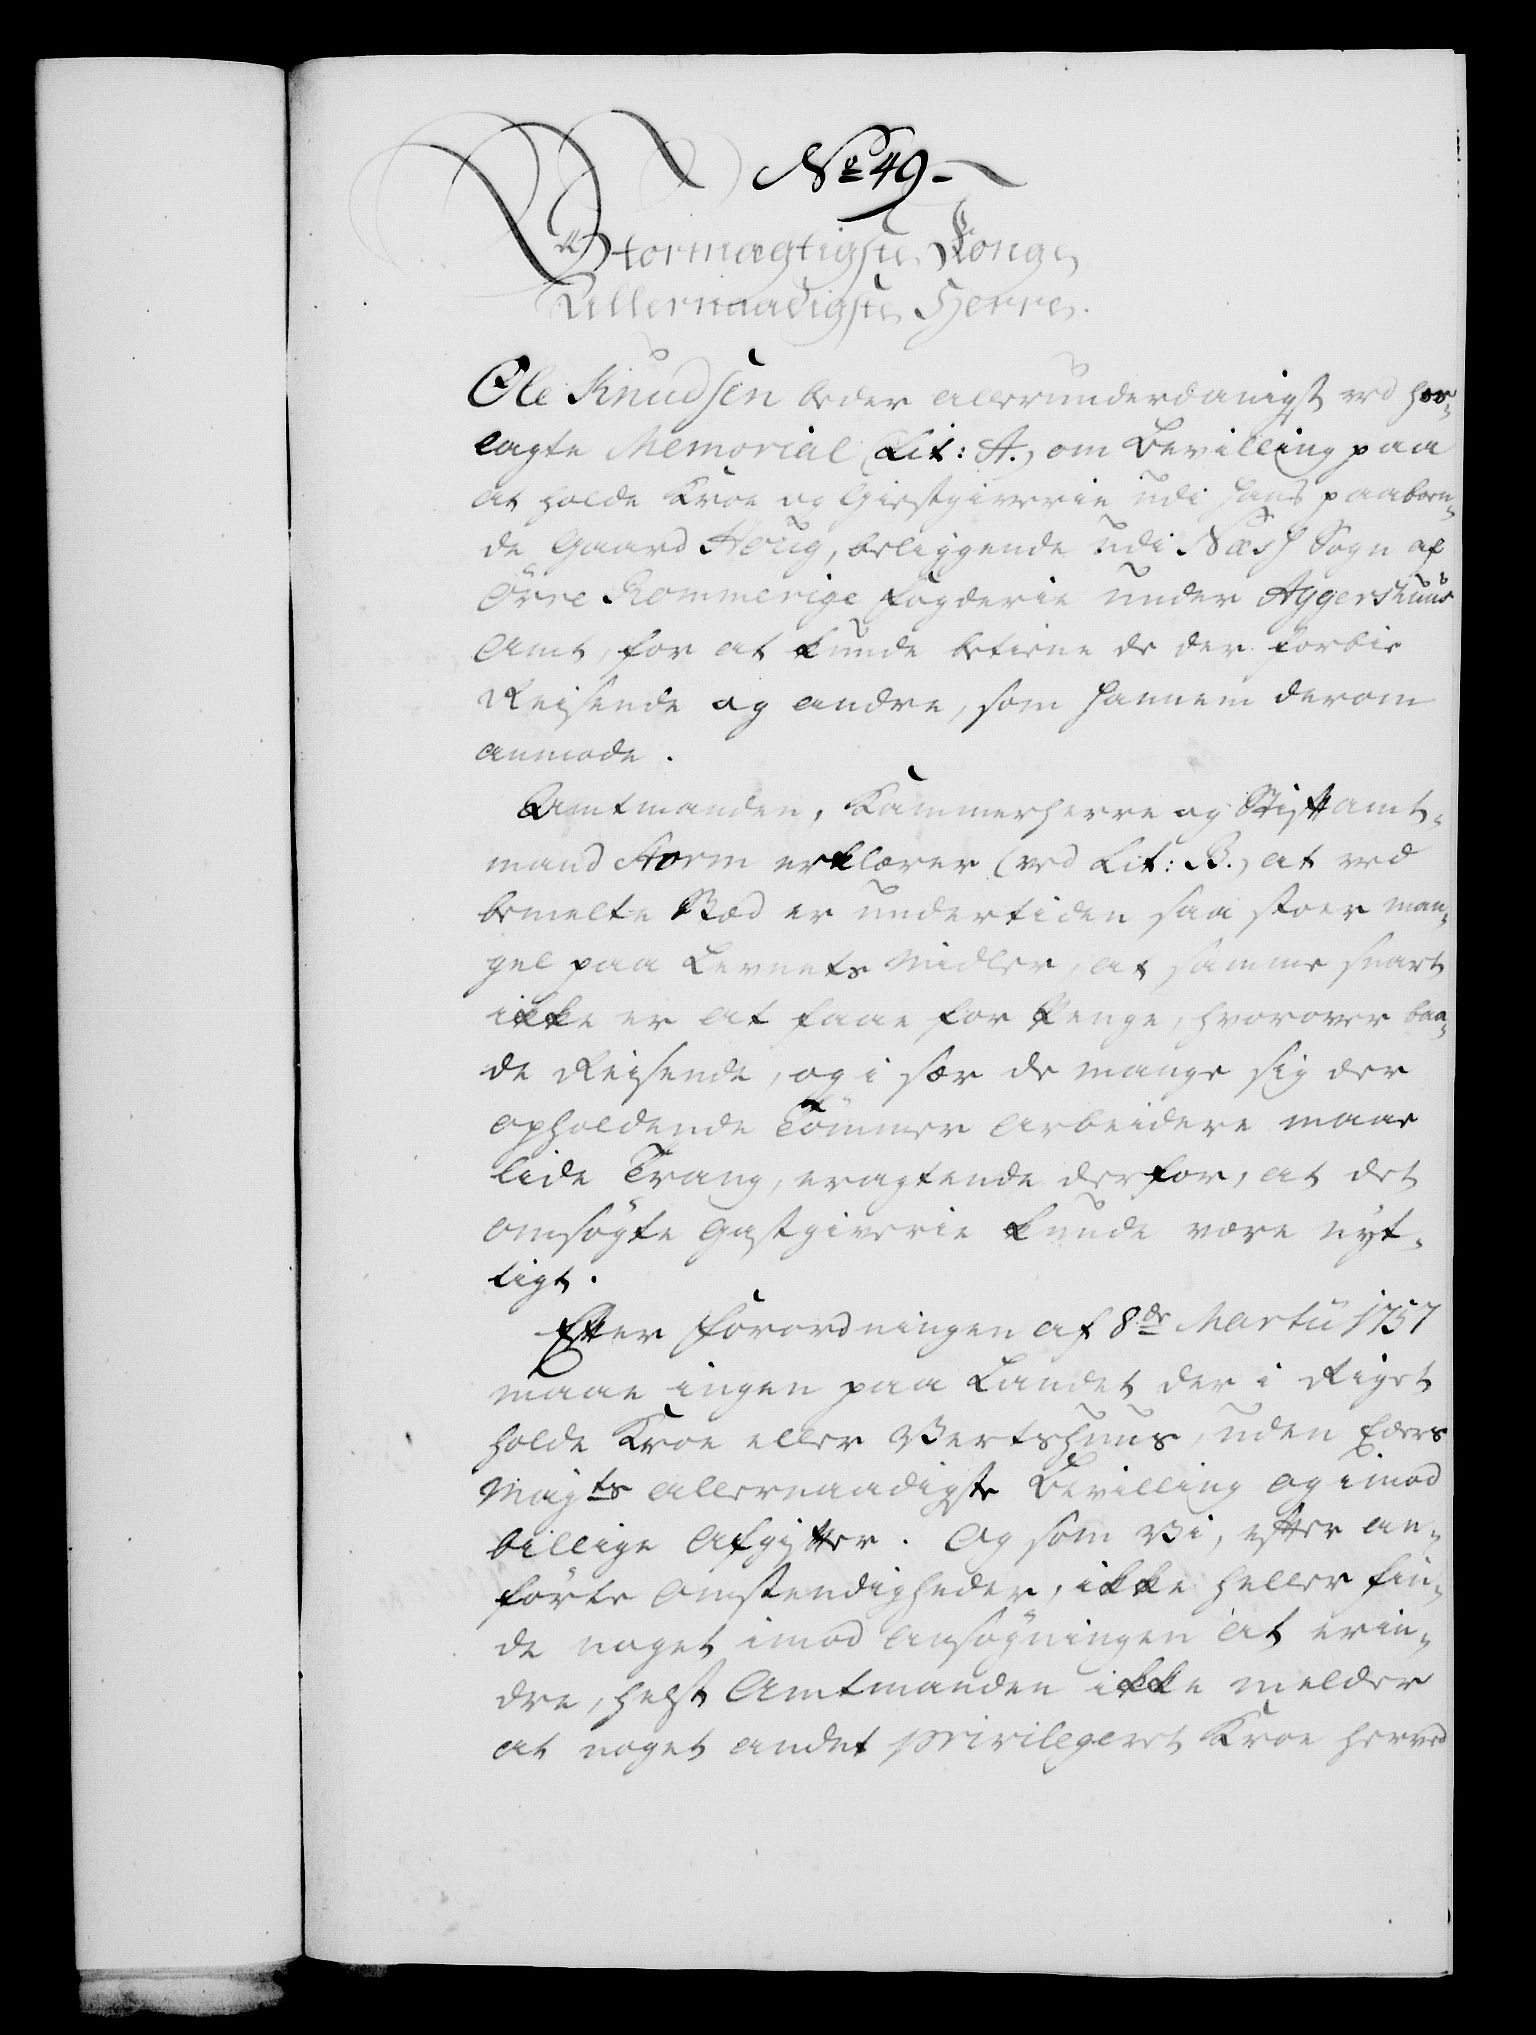 No 49.
Stormægtigste Konge
Allernaadigste Herre.
Ole Knudsen beder allerunderdanigst ved her¬
lagte Memorial (Lit: A.) om Bevilling paa
at holde Kroe og Giestgiverie udi hans paaboen¬
de Gaard Houg, beliggende udi Næs Sogn af
Övre Rommerige Fogderie under Aggershuus
Amt, for at kunde betiene de der forbie
Reisende og andre, som hannem derom
anmode.
Amtmanden, Kammerherre og Stiftamt¬
mand Storm erklærer (ved Lit: B.) at ved
bemelte Stæd er undertiden saa stoer man¬
gel paa Levnets Midler, at samme snart
ikke er at faae for Penge, hvorover baa¬
de Reisende, og i sær de mange sig der
opholdende Tömmer Arbeidere maae
lide Trang, eragtende derfor, at det
omsögte Gastgiverie kunde være nyt¬
tigt.
Efter Forordningen af 8de Martii 1757
maae ingen paa Landet der i Riget
holde Kroe eller Vertshuus, uden Eders
Mayts allernaadigste Bevilling og imod
billige Afgifter. Og som Vi, efter an¬
förte Omstendigheder, ikke heller fin¬
de noget imod Ansögningen at erin¬
dre, helst Amtmanden ikke melder
at noget andet privilegeret Kroe herved